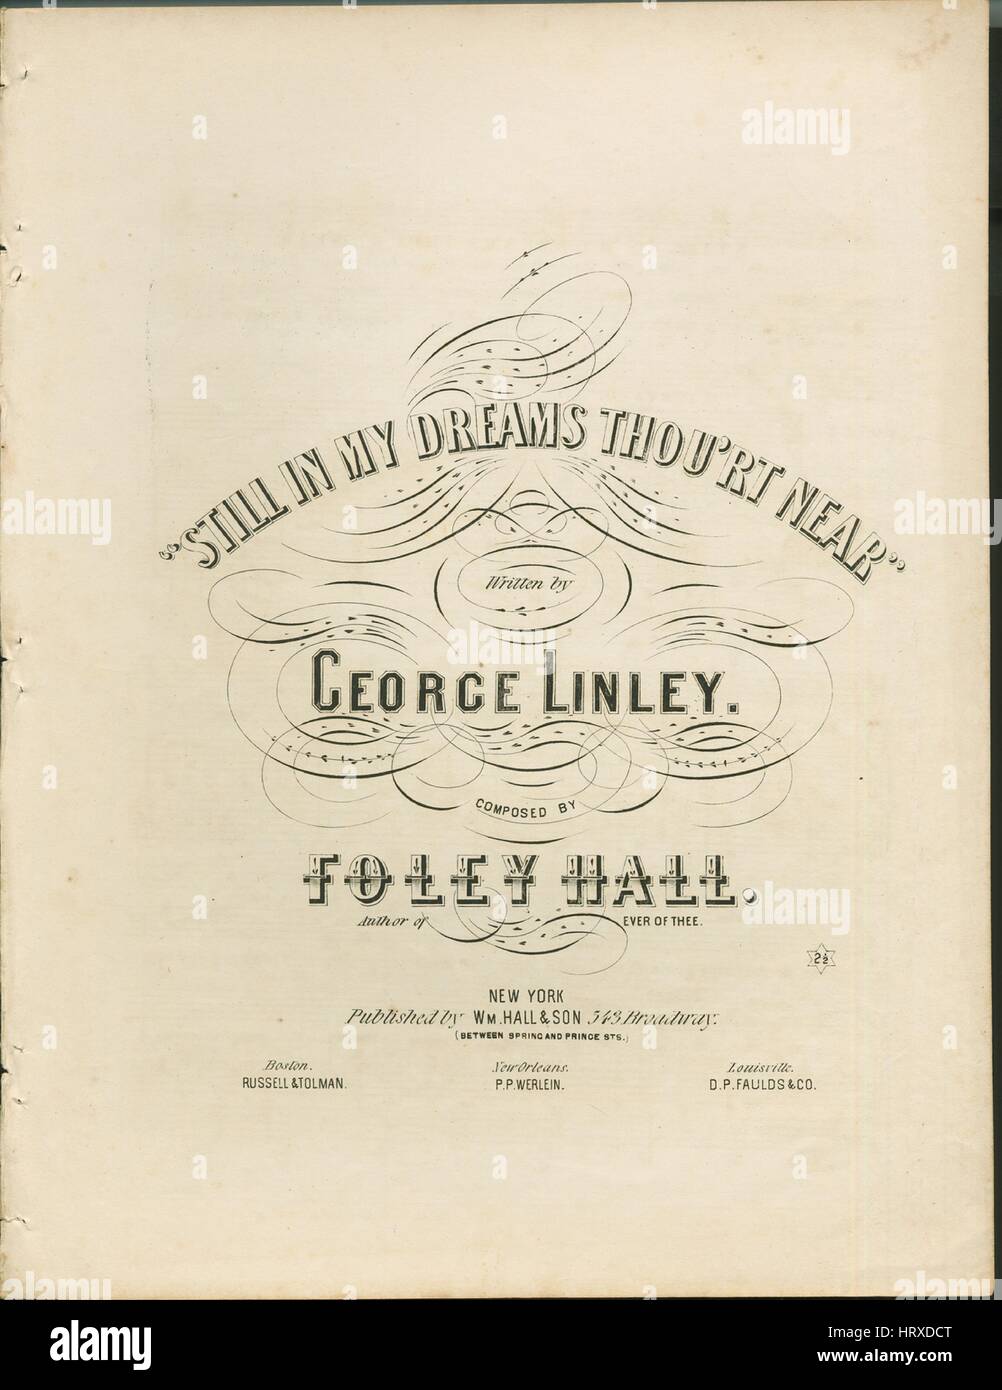 "STILL IN MY DREAMS THOU'RT NEAR"
Written by
GEORGE LINLEY.
COMPOSED BY
FOLEY HALL.
Author of EVER OF THEE.
2½
NEW YORK
Published by WM. HALL & SON 543 Broadway.
(BETWEEN SPRING AND PRINCE STS.)
Boston. New Orleans. Louisville.
RUSSELL & TOLMAN. P.P. WERLEIN. D.P. FAULDS & CO.
alamy
a
alamy stock photo
HRXDCT
www.alamy.com